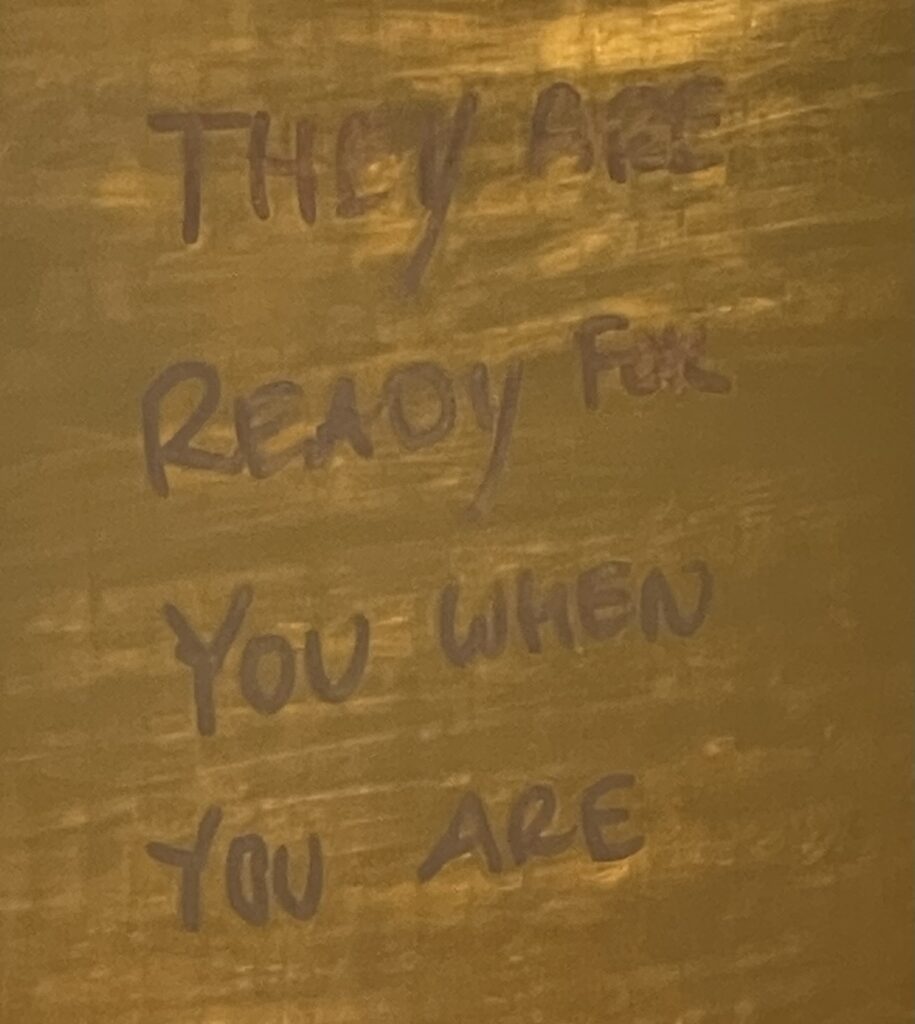 THEY ARE
READY FOR
YOU WHEN
YOU ARE